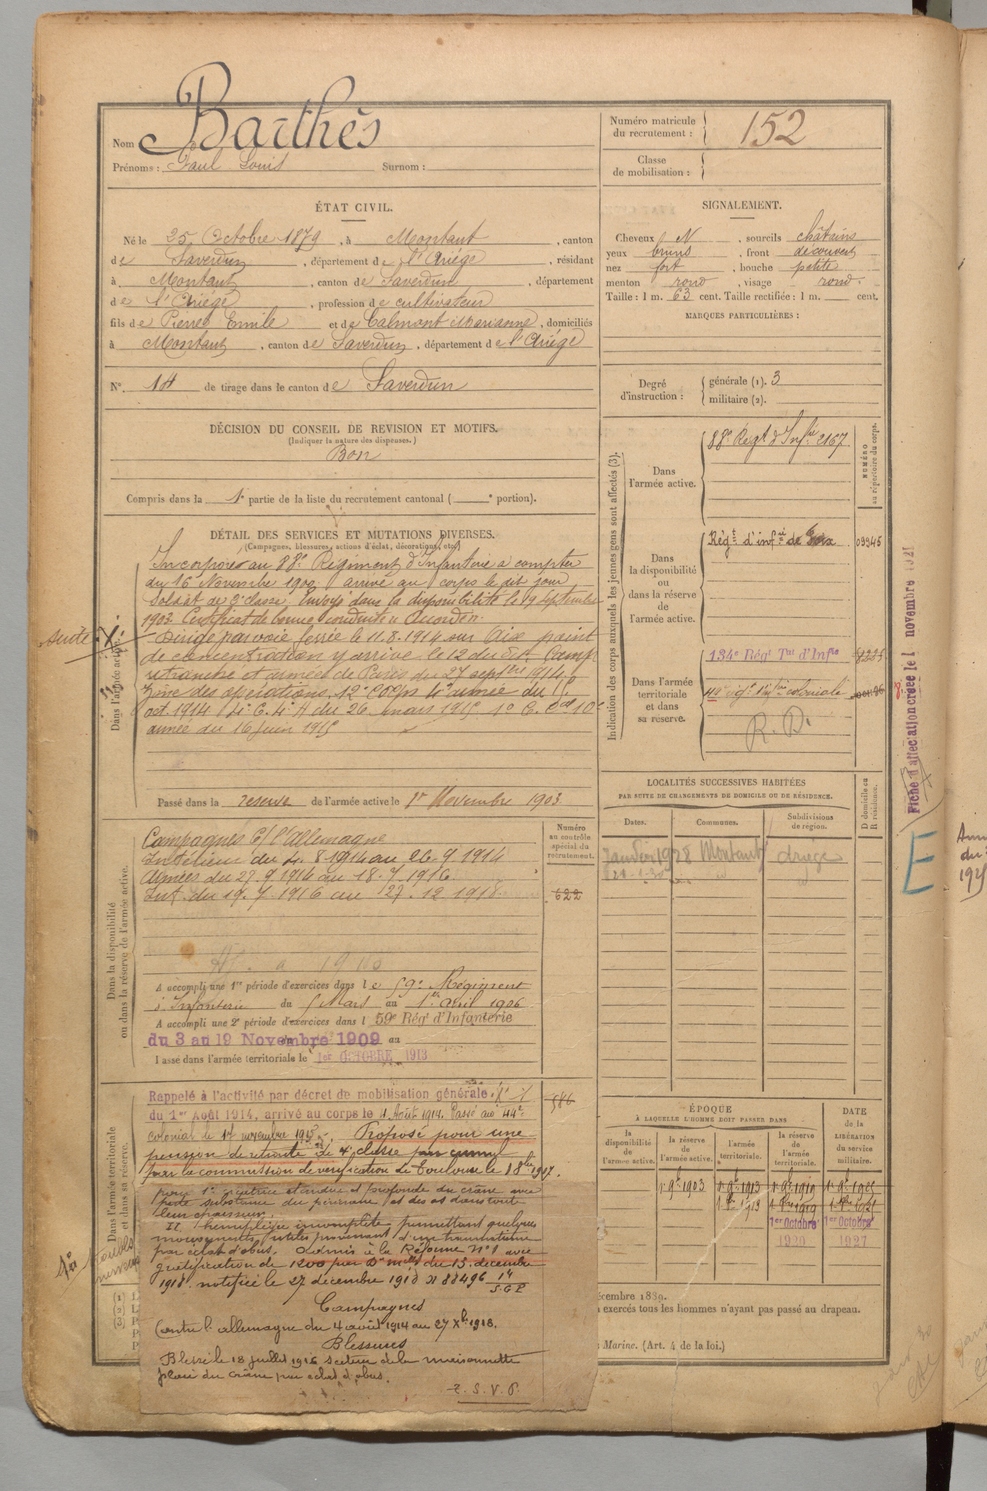 Nom Barthès
Prénoms : Paul Louis Surnom :
Numéro matricule du recrutement : 152
Classe de mobilisation :
ÉTAT CIVIL.
Né le 25 Octobre 1879, à Montaut, canton
de Saverdun, département de l'Ariège, résidant
à Montaut, canton de Saverdun, département
de l'Ariège, profession de cultivateur
fils de Pierre Emile et de Calmont Marianne, domiciliés
à Montaut, canton de Saverdun, département de l'Ariège
N° 14 de tirage dans le canton de Saverdun
SIGNALEMENT.
Cheveux N, sourcils châtains
yeux bruns, front découvert
nez fort, bouche petite
menton rond, visage rond.
Taille : 1 m. 63 cent. Taille rectifiée : 1 m. cent.
MARQUES PARTICULIÈRES :
Degré d'instruction : générale (1). 3
militaire (2).
DÉCISION DU CONSEIL DE REVISION ET MOTIFS.
(Indiquer la nature des dispenses.)
Bon
Compris dans la 1e partie de la liste du recrutement cantonal ( e portion).
DÉTAIL DES SERVICES ET MUTATIONS DIVERSES.
(Campagnes, blessures, actions d'éclat, décorations, etc.)
Dans l'armée active.
Incorporé au 88e Régiment d'Infanterie à compter
du 16 Novembre 1900, arrivé au corps le dit jour
soldat de 2e classe. Envoyé dans la disponibilité le 19 Septembre
1903. Certificat de bonne conduite « Accordé »
Dirigé par voie ferrée le 11.8.1914 sur Aix point
de concentration y arrive le 12 du dit. Camp
retranché et armée de Paris du 27 septbre 1914.
Zone des opérations 12e Corps 4e armée du
oct. 1914 4e C. 4e A du 26 mars 1915
armée du 16 Juin 1915
Passé dans la réserve de l'armée active le 1er Novembre 1903
Dans la disponibilité ou dans la réserve de l'armée active.
Numéro au contrôle spécial du recrutement.
Campagnes C/ l'Allemagne
Intérieur du 4.8.1914 au 26.9.1914
Armées du 27.9.1914 au 18.7.1916
Int. du 19.7.1916 au 27.12.1918
622
A accompli une 1re période d'exercices dans le 59e Régiment
d'Infanterie du 5 Mars au 1er Avril 1906
A accompli une 2e période d'exercices dans l 59e Régt d'Infanterie
du 3 au 19 Novembre 1909 au
Passé dans l'armée territoriale le 1er OCTOBRE 1913
Dans l'armée territoriale et dans sa réserve.
Rappelé à l'activité par décret de mobilisation générale
du 1er Août 1914, arrivé au corps le 4 Août 1914. Passé au 44e
colonial le 1er novembre 1915. Proposé pour une
pension de retraite de 4e classe
par la commission de vérification de Toulouse le
586
pour 1° cicatrice étendue et profonde du crâne avec
perte substance du périoste et des os dans toute
leur épaisseur.
II. hémiplégie incomplète permettant quelques
mouvements utiles provenant d'un traumatisme
par éclat d'obus. Admis à la Réforme N° 1 avec
gratification de 1200 par Don melle du 13 décembre
1918 notifiée le 27 décembre 1918
Campagnes
Contre l'allemagne du 4 août 1914 au 27 Xbre 1918.
Blessures
Blessé le 18 juillet 1916 secteur de la maisonnette
plaie du crâne par éclat d'obus.
T.S.V.P.
Indication des corps auxquels les jeunes gens sont affectés (3).
NUMÉRO au répertoire du corps.
Dans l'armée active.
88e Regt d'Infie 2167
Dans la disponibilité ou dans la réserve de l'armée active.
Régt d'infie de Foix 03945
Dans l'armée territoriale et dans sa réserve.
134e Régt Tal d'Infie
44e régt d'Infie coloniale
R. D.
LOCALITÉS SUCCESSIVES HABITÉES
PAR SUITE DE CHANGEMENTS DE DOMICILE OU DE RÉSIDENCE.
Dates. Communes. Subdivisions de région. D domicile ou R résidence.
Janvier 1928 Montaut Ariège
ÉPOQUE
À LAQUELLE L'HOMME DOIT PASSER DANS
la disponibilité de l'armée active. la réserve de l'armée active. l'armée territoriale. la réserve de l'armée territoriale.
DATE de la LIBÉRATION du service militaire.
1er 9bre 1903 1er 9bre 1913 1er 9bre 1919
1er Octobre 1er Octobre
1920 1927
décembre 1889.
exercés tous les hommes n'ayant pas passé au drapeau.
Marine. (Art. 4 de la loi.)
Fiche d'affectation créée le 1 novembre 1921
E